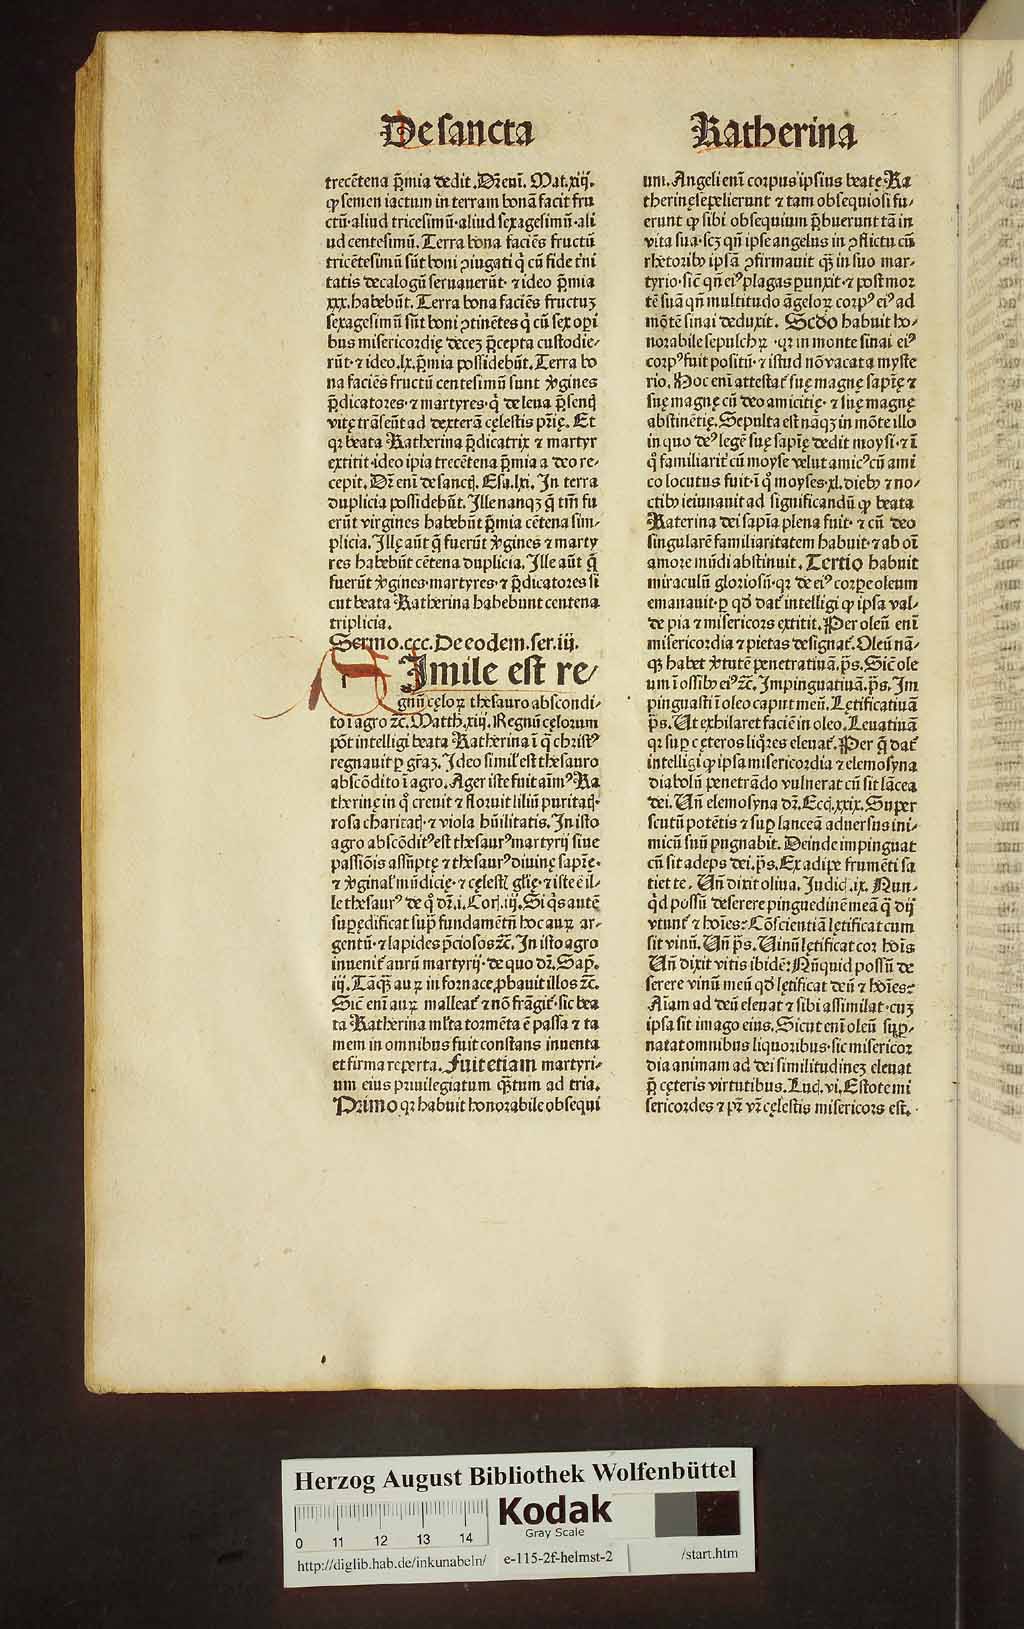 De sancta Katherina
trecētena p̄mia dedit. Dr̄ enī. Mat. xiij.
ꝙ semen iactum in terram bonā facit fru
ctū·aliud tricesimū·aliud sexagesimū·ali
ud centesimū. Terra bona faciēs fructū
tricētesimū sūt boni ɔiugati q̇ cū fide t̄ni
tatis decalogū seruauerūt· ⁊ ideo p̄mia
xxx. habebūt. Terra bona faciēs fructuꝫ
sexagesimū sūt boni ɔtinētes q̇ cū sex oꝑi
bus misericordię deceꝫ p̄cepta custodie⸗
rūt· ⁊ ideo. lx. p̄mia possidebūt. Terra bo
na faciēs fructū centesimū sunt v̓gines
p̄dicatores· ⁊ martyres· q̇ de leua p̄sentꝭ
vitę trāseūt ad dexterā cęlestis pr̄ię. Et
qꝛ beata Katherina p̄dicatrix ⁊ martyr
extitit·ideo ip̄a trecētena p̄mia a deo re⸗
cepit. Dr̄ enī de sanctꝭ. Esa. lxi. In terra
duplicia possidebūt. Ille nanqꝫ q̄ tm̄ fu
erūt virgines habebūt p̄mia cētena sim⸗
plicia. Illę aūt q̄ fuerūt v̓gines ⁊ marty
res habebūt cētena duplicia. Ille aūt q̄
fuerūt v̓gines·martyres· ⁊ p̄dicatores si
cut beata Katherina habebunt centena
triplicia.
Sermo. ccc. De eodem. ser. iij.
SImile est re⸗
gnū cęloꝝ thesauro abscondi⸗
to ī agro ⁊c̄. Matth. xiij. Regnū cęlorum
pōt intelligi beata Katherina ī q̄ christꝰ
regnauit ꝑ gr̄aꝫ. Ideo simil̓ est thesauro
abscōdito ī agro. Ager iste fuit aīmꝰ Ka
therinę in q̊ creuit ⁊ floruit liliū puritatꝭ·
rosa charitatꝭ· ⁊ viola hūilitatis. In isto
agro abscōditꝰ est thesaurꝰ martyrij siue
passiōis assūptę ⁊ thesaurꝰ diuinę sapīę·
⁊ v̓ginal̓ mūdicię· ⁊ cęlestꝭ gl̄ię· ⁊ iste ē il⸗
le thesaurꝰ de q̊ dr̄. i. Corꝭ. iij. Si q̇s autē
supędificat supr̄ fundamētū hoc auꝝ ar⸗
gentū· ⁊ lapides p̄ciosos ⁊c̄. In isto agro
inuenit̓ aurū martyrij· de quo dr̄. Sap̄.
iij. Tāqꝫ auꝝ in fornace ꝓbauit illos ⁊c̄.
Sic̄ enī auꝝ malleat̓ ⁊ nō frāgit̓·sic bea
ta Katherina ml̓ta tormēta ē passa ⁊ ta
men in omnibus fuit constans inuenta
et firma reperta. Fuit etiam martyri⸗
um eius priuilegiatum q̄ꝫtum ad tria.
Primo qꝛ habuit honorabile obsequi
um. Angeli enī corpus ipsius beatę Ka
therinę sepelierunt ⁊ tam obsequiosi fu⸗
erunt ꝙ sibi obsequium p̄buerunt tā in
vita sua·scꝫ qn̄ ipse angelus in ɔflictu cū
rhetoribꝰ ipsā ɔfirmauit qꝫ in suo mar⸗
tyrio·sic̄ qn̄ eiꝰ plagas ꝑunxit· ⁊ post mor
tē suā qn̄ multitudo āgeloꝝ corpꝰ eiꝰ ad
mōtē sinai deduxit. Scd̓o habuit ho⸗
norabile sepulchꝝ·qꝛ in monte sinai eiꝰ
corpꝰ fuit positū· ⁊ istud nō vacat a myste
rio. Hoc enī attestat̓ suę magnę sapīę ⁊
suę magnę cū deo amicitię· ⁊ suę magnę
abstinētię. Sepulta est nāqꝫ in mōte illo
in quo deꝰ legē suę sapīę dedit moysi· ⁊ ī
q̊ familiarit̓ cū moyse velut amicꝰ cū ami
co locutus fuit·ī q̊ moyses·xl. diebꝰ ⁊ no⸗
ctibꝰ ieiunauit ad significandū ꝙ beata
Katerina dei sapīa plena fuit· ⁊ cū deo
singularē familiaritatem habuit· ⁊ ab oī
amore mūdi abstinuit. Tertio habuit
miraculū gloriosū·qꝛ de eiꝰ corꝑe oleum
emanauit·ꝑ qd̓ dat̓ intelligi ꝙ ipsa val⸗
de pia ⁊ misericors extitit. Per oleū enī
misericordia ⁊ pietas designat̓. Oleū nā⸗
qꝫ habet v̓tutē penetratiuā. p̄s. Sic̄ ole
um ī ossibꝰ eiꝰ ⁊c̄. Impinguatiuā. p̄s. Im
pinguasti ī oleo caput meū. Lętificatiuā
p̄s. Ut exhilaret faciē in oleo. Leuatiuā
qꝛ suꝑ cęteros liq̊res eleuat̓. Per q̄ dat̓
intelligi ꝙ ipsa misericordia ⁊ elemosyna
diabolū penetrādo vulnerat cū sit lācea
dei. Un̄ elemosyna dr̄. Ecclꝭ. xxix. Super
scutū potētis ⁊ suꝑ lanceā aduersus ini⸗
micū suū pugnabit. Deinde impinguat
cū sit adeps dei. p̄s. Ex adipe frumēti sa
tiet te. Un̄ dixit oliua. Judic̄. ix. Nun⸗
q̇d possū deserere pinguedinē meā q̄ dij
vtunt̓ ⁊ hoīes: Cōscientiā lętificat cum
sit vinū. Un̄ p̄s. Uinū lętificat cor hoīs
Un̄ dixit vitis ibidē: Nūquid possū de
serere vinū meū qd̓ lętificat deū ⁊ hoīes:
Aīam ad deū eleuat ⁊ sibi assimilat·cuꝫ
ipsa sit imago eius. Sicut enī oleū suꝑ⸗
natat omnibus liquoribus·sic misericor
dia animam ad dei similitudineꝫ eleuat
p̄ cęteris virtutibus. Lucꝭ. vi. Estote mi
sericordes ⁊ pr̄ vr̄ cęlestis misericors est.
Herzog August Bibliothek Wolfenbüttel
Kodak
Gray Scale
0 11 12 13 14
http://diglib.hab.de/inkunabeln/ e-115-2f-helmst-2 /start.htm